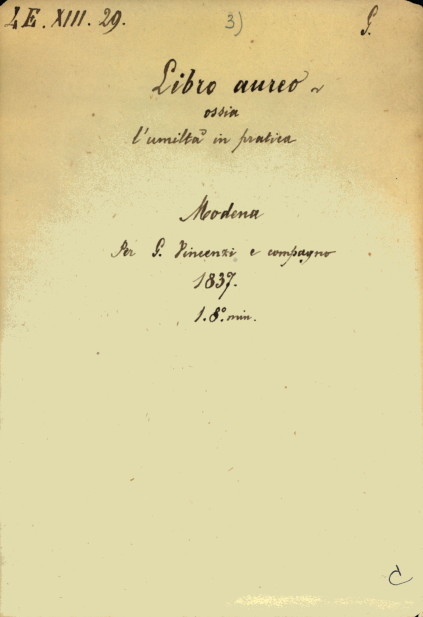 4E. XIII. 29.
3)
G.
Libro aureo
ossia
l'umiltà in pratica
Modena
Per G. Vincenzi e compagno
1837.
1. 8.º min.
C